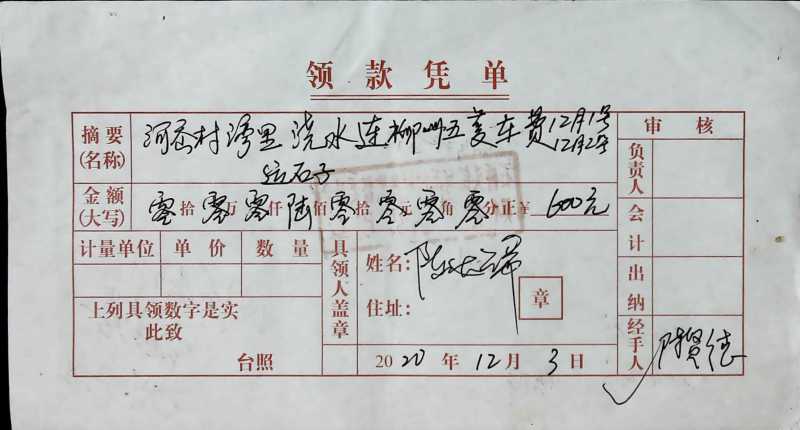 领款凭单
摘要 (名称) 河 村湾里浇水连柳州五菱车费12月1号
12月2号
拉石子
审核
负责人
金额 (大写) 零拾零万零仟陆佰零拾零元零角零分正¥ 600元
会计
计量单位 单价 数量
具领人盖章
姓名: 陈
住址:
章
出纳
上列具领数字是实
此致
台照
2020年12月3日
经手人 陈贤德